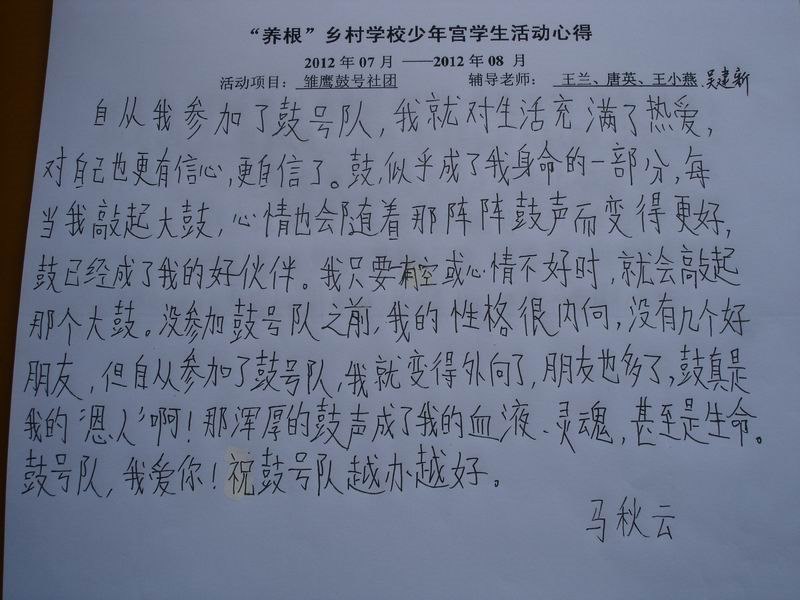 “养根”乡村学校少年宫学生活动心得
2012 年 07 月 ——2012 年 08 月
活动项目： 雏鹰鼓号社团 辅导老师： 王兰、唐英、王小燕、吴建新
自从我参加了鼓号队，我就对生活充满了热爱，
对自己也更有信心，更自信了。鼓，似乎成了我身命的一部分，每
当我敲起大鼓，心情也会随着那阵阵鼓声而变得更好，
鼓已经成了我的好伙伴。我只要有空或心情不好时，就会敲起
那个大鼓。没参加鼓号队之前，我的性格很内向，没有几个好
朋友，但自从参加了鼓号队，我就变得外向了，朋友也多了，鼓真是
我的“恩人”啊！那浑厚的鼓声成了我的血液、灵魂，甚至是生命。
鼓号队，我爱你！祝鼓号队越办越好。
马秋云